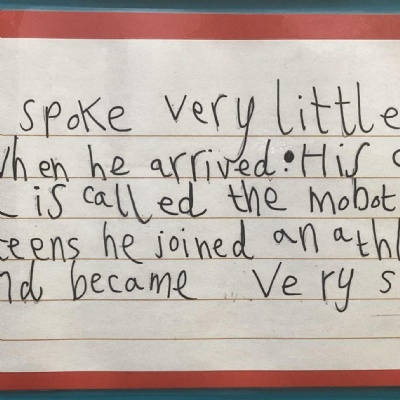 spoke very little
when he arrived. His
is called the mobot
teens he joined an athl
nd became very s